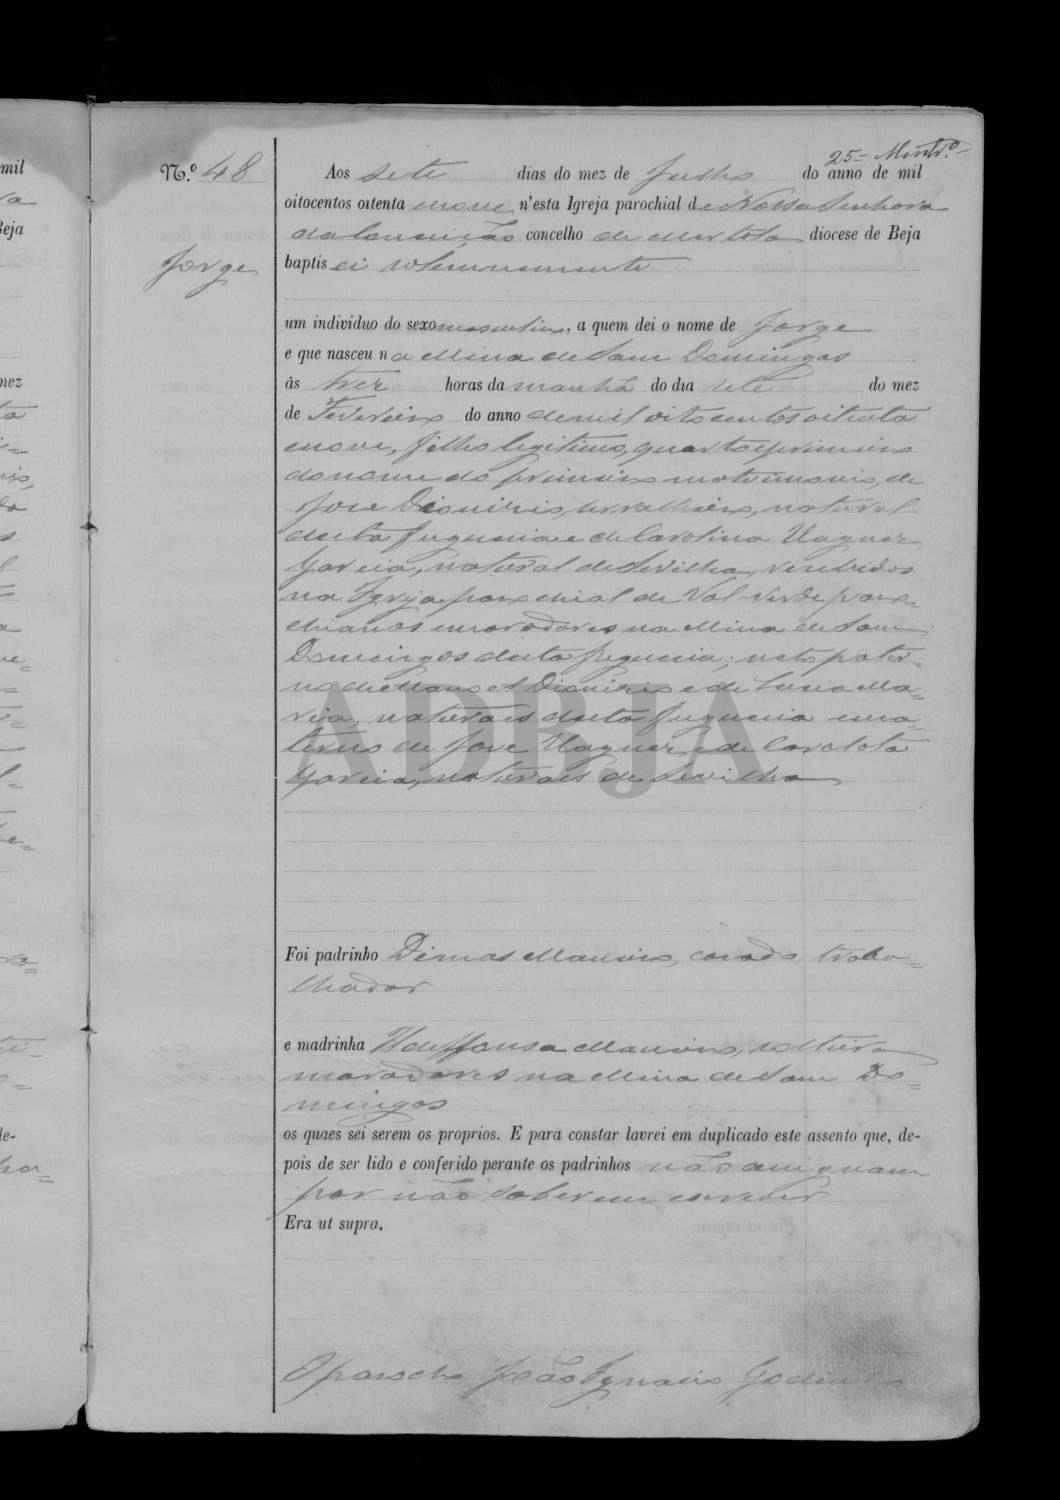 25 =
N.º 48
Jorge
Aos sete dias do mez de Julho do anno de mil
oitocentos oitenta e nove, n'esta Igreja parochial de Nossa Senhora
da Conceição concelho de Mertola diocese de Beja
baptisei solemnemente
um individuo do sexo masculino, a quem dei o nome de Jorge
e que nasceu na Mina de Sam Domingos
ás trez horas da manhã do dia sete do mez
de Fevereiro do anno de mil oito centos oitenta
e nove, filho legitimo, quarto e primeiro
do nome do primeiro matrimonio, de
Jose Dionizio, natural
desta freguesia e de Carolina Vaquez
Garcia, natural de Sevilha, recebidos
na Igreja parochial de Val-Verde paro=
chianos e moradores na Mina de Sam
Domingos desta freguesia; neto pater=
no de Dionizio e de Luzia Ma=
ria, naturaes desta freguesia e ma=
terno de Jose Vaquez e de Carolota
Garcia, naturaes de Sevilha
ADBJA
Foi padrinho Dimas casado, traba=
lhador
e madrinha solteira
moradores na Mina de Sam Do=
mingos
os quaes sei serem os proprios. E para constar lavrei em duplicado este assento que, de-
pois de ser lido e conferido perante os padrinhos não assignam
por não saberem escrever
Era ut supra.
O parocho João Ignacio Godinho
mil
Beja
mez
de-